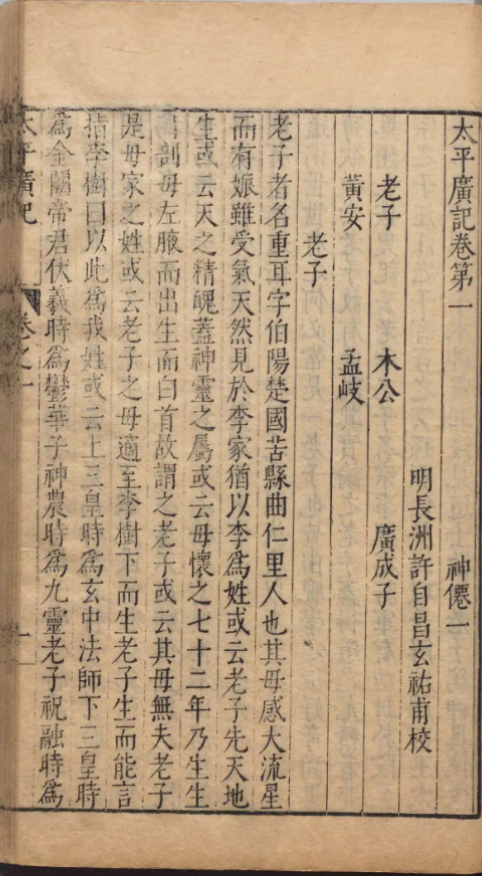 太平廣記卷第一　神僊一
明長洲許自昌玄祐甫校
老子　木公　廣成子
黃安　孟岐
老子
老子者名重耳字伯陽楚國苦縣曲仁里人也其母感大流星
而有娠雖受氣天然見於李家猶以李爲姓或云老子先天地
生或云天之精魄蓋神靈之屬或云母懷之七十二年乃生生
時剖母左腋而出生而白首故謂之老子或云其母無夫老子
是母家之姓或云老子之母適至李樹下而生老子生而能言
指李樹曰以此爲我姓或云上三皇時爲玄中法師下三皇時
爲金闕帝君伏羲時爲鬱華子神農時爲九靈老子祝融時爲
太平廣記　卷之一　一